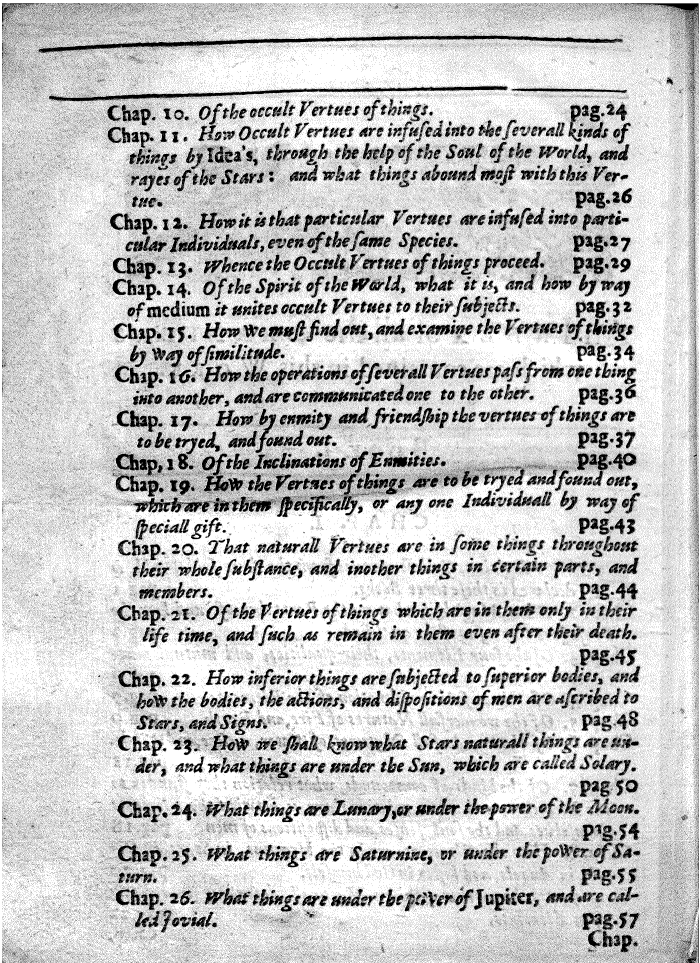 Chap. 10. Of the occult Vertues of things. pag.24
Chap. 11. How Occult Vertues are infuſed into the ſeverall kinds of
things by Idea's, through the help of the Soul of the World, and
rayes of the Stars: and what things abound moſt with this Ver-
tue. pag.26
Chap. 12. How it is that particular Vertues are infuſed into parti-
cular Individuals, even of the ſame Species. pag.27
Chap. 13. Whence the Occult Vertues of things proceed. pag.29
Chap. 14. Of the Spirit of the World, what it is, and how by way
of medium it unites occult Vertues to their ſubjects. pag.32
Chap. 15. How we muſt find out, and examine the Vertues of things
by way of ſimilitude. pag.34
Chap. 16. How the operations of ſeverall Vertues paſs from one thing
into another, and are communicated one to the other. pag.36
Chap. 17. How by enmity and friendſhip the vertues of things are
to be tryed, and found out. pag.37
Chap, 18. Of the Inclinations of Enmities. pag.40
Chap. 19. How the Vertues of things are to be tryed and found out,
which are in them ſpecifically, or any one Individuall by way of
ſpeciall gift. pag.43
Chap. 20. That naturall Vertues are in ſome things throughout
their whole ſubſtance, and in other things in certain parts, and
members. pag.44
Chap. 21. Of the Vertues of things which are in them only in their
life time, and ſuch as remain in them even after their death.
pag.45
Chap. 22. How inferior things are ſubjected to ſuperior bodies, and
how the bodies, the actions, and diſpoſitions of men are aſcribed to
Stars, and Signs. pag.48
Chap. 23. How we ſhall know what Stars naturall things are un-
der, and what things are under the Sun, which are called Solary.
pag.50
Chap. 24. What things are Lunary, or under the power of the Moon.
pag.54
Chap. 25. What things are Saturnine, or under the power of Sa-
turn. pag.55
Chap. 26. What things are under the power of Jupiter, and are cal-
led Jovial. pag.57
Chap.